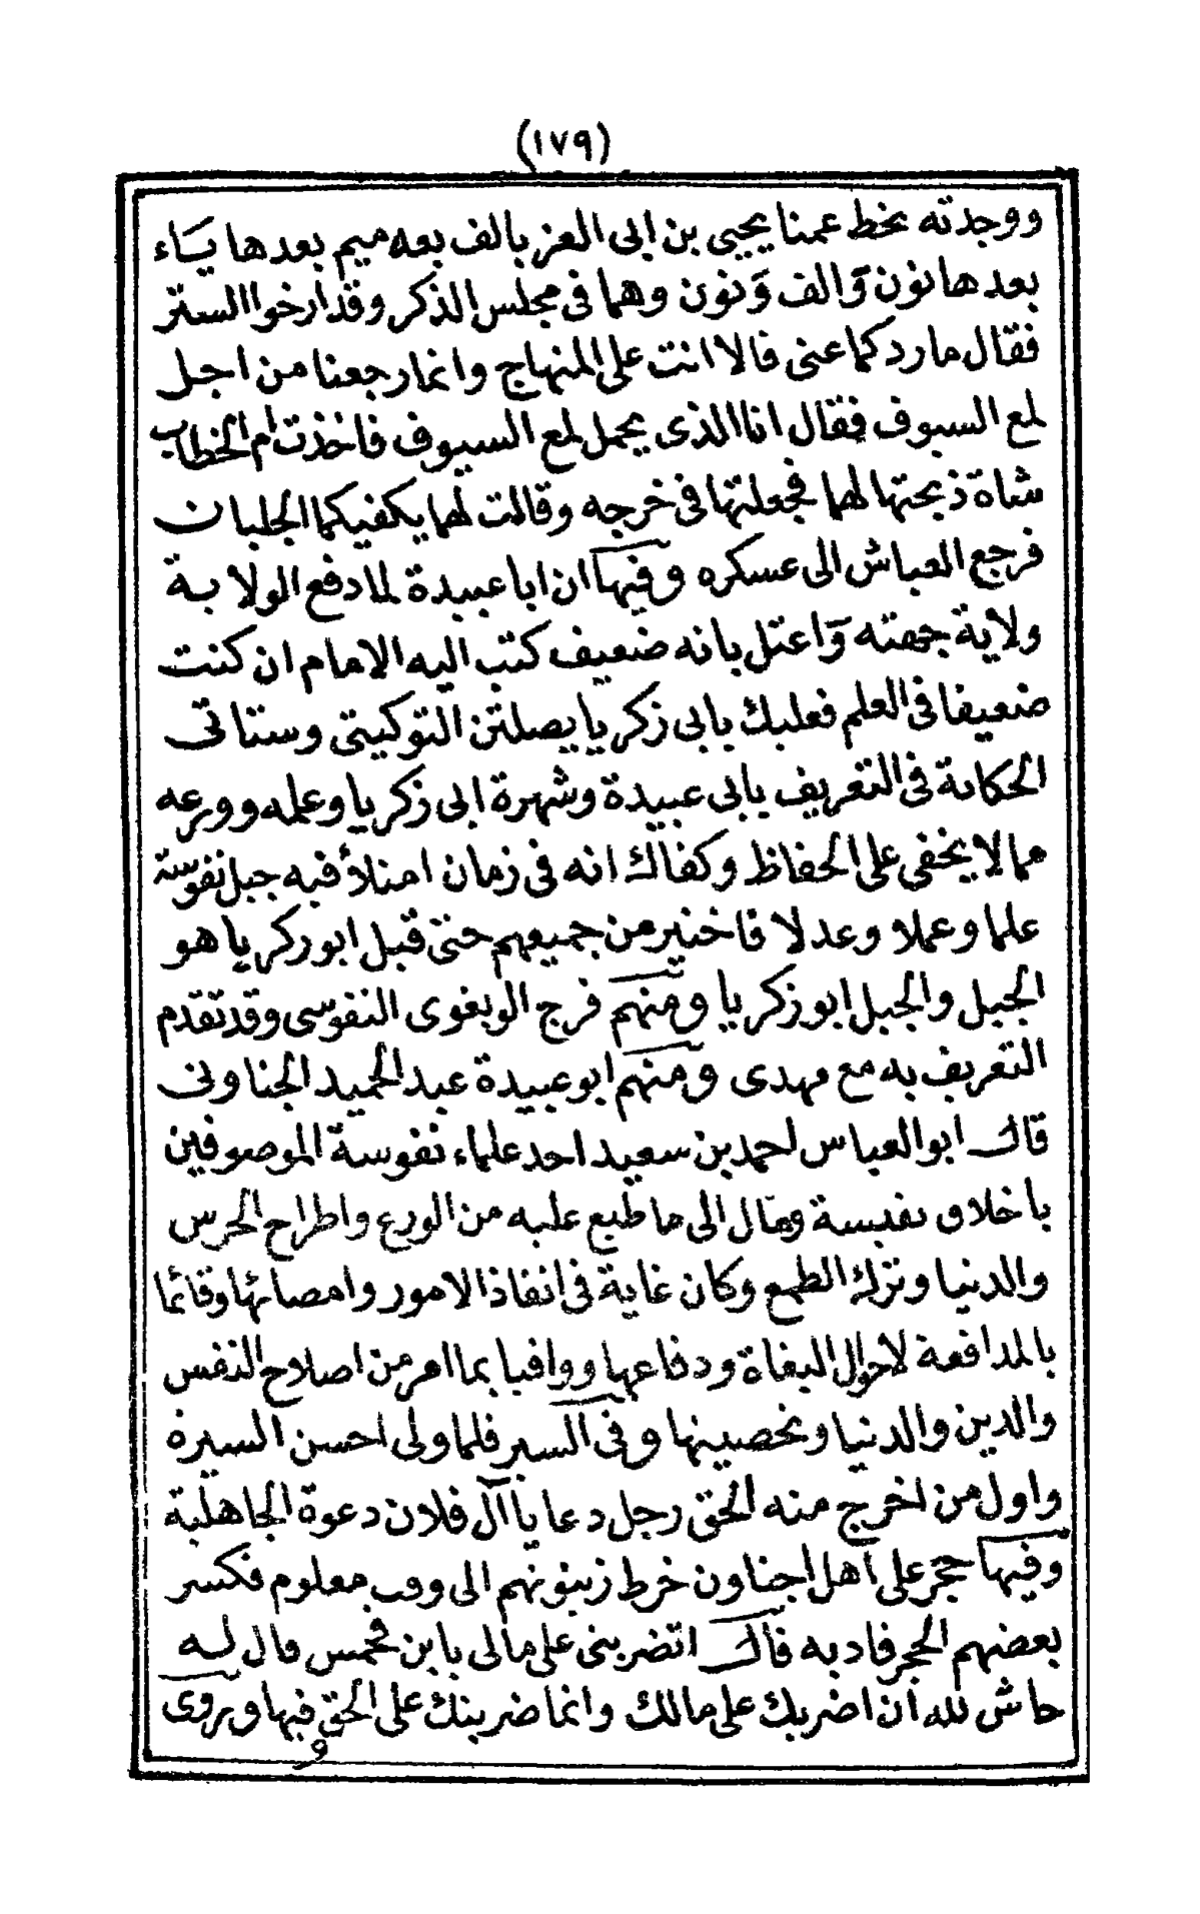 (١٧٩)
ووجدته بخط عمنا يحيى بن ابى العز بالف بعه ميم بعدها يَاء
بعدها نون وَالف وَنون وهما فى مجلس الذكر وقد ارخوا الستر
فقال ما ردكما عنى قالا انت على المنهاج وانما رجعنا من اجل
لمع السيوف فقال انا الذى يحمل لمع السيوف فاخذت ام الخطاب
شاة ذبحتها لهما فجعلتها فى خرجه وقالت لهما يكفيكما الجلبان
فرجع العباش الى عسكره وفيها ان ابا عبيدة لما دفع الولاية
ولاية جهته وَاعتل بانه ضعيف كتب اليه الامام ان كنت
ضعيفا فى العلم فعليك بابى زكريا يصلتن التوكيتى وستاتى
الحكاية فى التعريف بابى عبيدة وشهرة ابى زكريا وعلمه وورعه
مما لا يخفى على الحفاظ وكفاك انه فى زمان امتلأ فيه جبل نفوسة
علما وعملا وعدلا فاختير من جميعهم حتى قيل ابو زكريا هو
الجبل والجبل ابو زكريا ومنهم فرج الوبغوى النفوسى وقد تقدم
التعريف به مع مهدى ومنهم ابو عبيدة عبد الحميد الجناونى
قال ابو العباس احمد بن سعيد احد علماء نفوسة الموصوفين
باخلاق نفيسة ومال الى ما طبع عليه من الورع واطراح الحرس
والدنيا وترك الطمع وكان غاية فى انفاذ الامور وامضائها وقائما
بالمدافعة لاحوال البغاة ودفاعها ووافيا بما امر من اصلاح النفس
والدين والدنيا وتحصينها وفى السير فلما ولى احسن السيرة
واول من اخرج منه الحق رجل دعا يا آل فلان دعوة الجاهلية
وفيها حجر على اهل اجناون خرط زيتونهم الى وقت معلوم فكسر
بعضهم الحجر فادبه قال اتضربنى على مالى يا بن فحمس قال له
حاش لله ان اضربك على مالك وانما ضربتك على الحق فيها ويروى
و